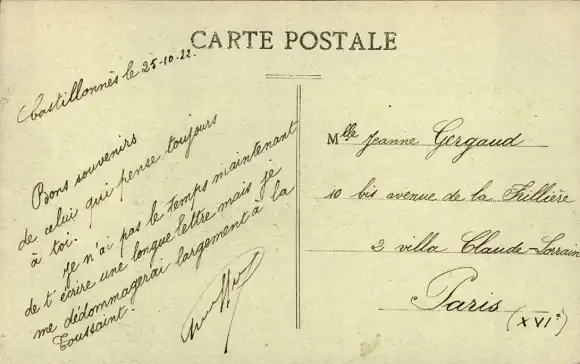 CARTE POSTALE
Castillonnès le 25-10-22.
Bons souvenirs
de celui qui pense toujours
à toi.
Je n'ai pas le temps maintenant
de t'écrire une longue lettre mais je
me dédommagerai largement à la
Toussaint.
Mlle Jeanne Gergaud
10 bis avenue de la Frillière
2 villa Claude-Lorrain
Paris (XVIe)